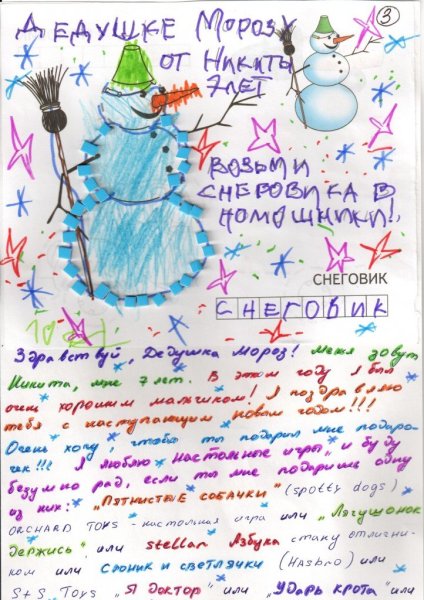 Дедушке Морозу
от Никиты
7 лет
3
Возьми
снеговика в
помощники!
СНЕГОВИК
СНЕГОВИК
Здравствуй, Дедушка Мороз! Меня зовут
Никита, мне 7 лет. В этом году я был
очень хорошим мальчиком! Я поздравляю
тебя с наступающим новым годом!!!
Очень хочу, чтобы ты подарил мне подаро-
чек!!! Я люблю настольные игры и буду
безумно рад, если ты мне подаришь одну
из них: "Пятнистые собачки" (spotty dogs)
ORCHARD TOYS - настольная игра или "Лягушонок
держись" или stellar Азбука стану отлични-
ком или Слоник и светлячки (Hasbro) или
S+S Toys "Я доктор" или "Ударь крота" или